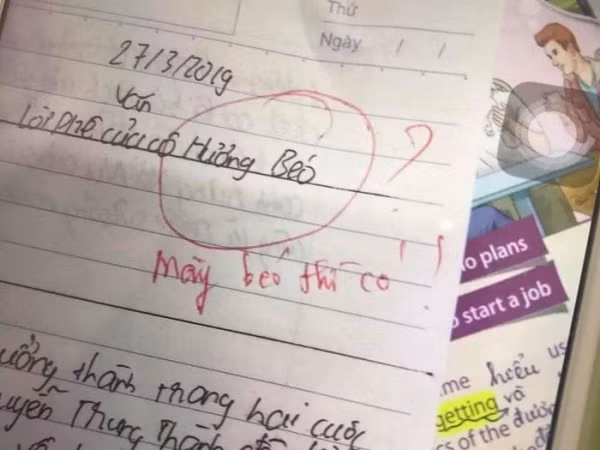 Thứ
Ngày / /
27/3/2019
Văn
Lời phê của cô Hưởng Béo
?
mày béo thì có !!
o plans
start a job
ưởng thành trong hai cuộc
uyễn Trung Thành
me hiểu us
getting và
cs of the được